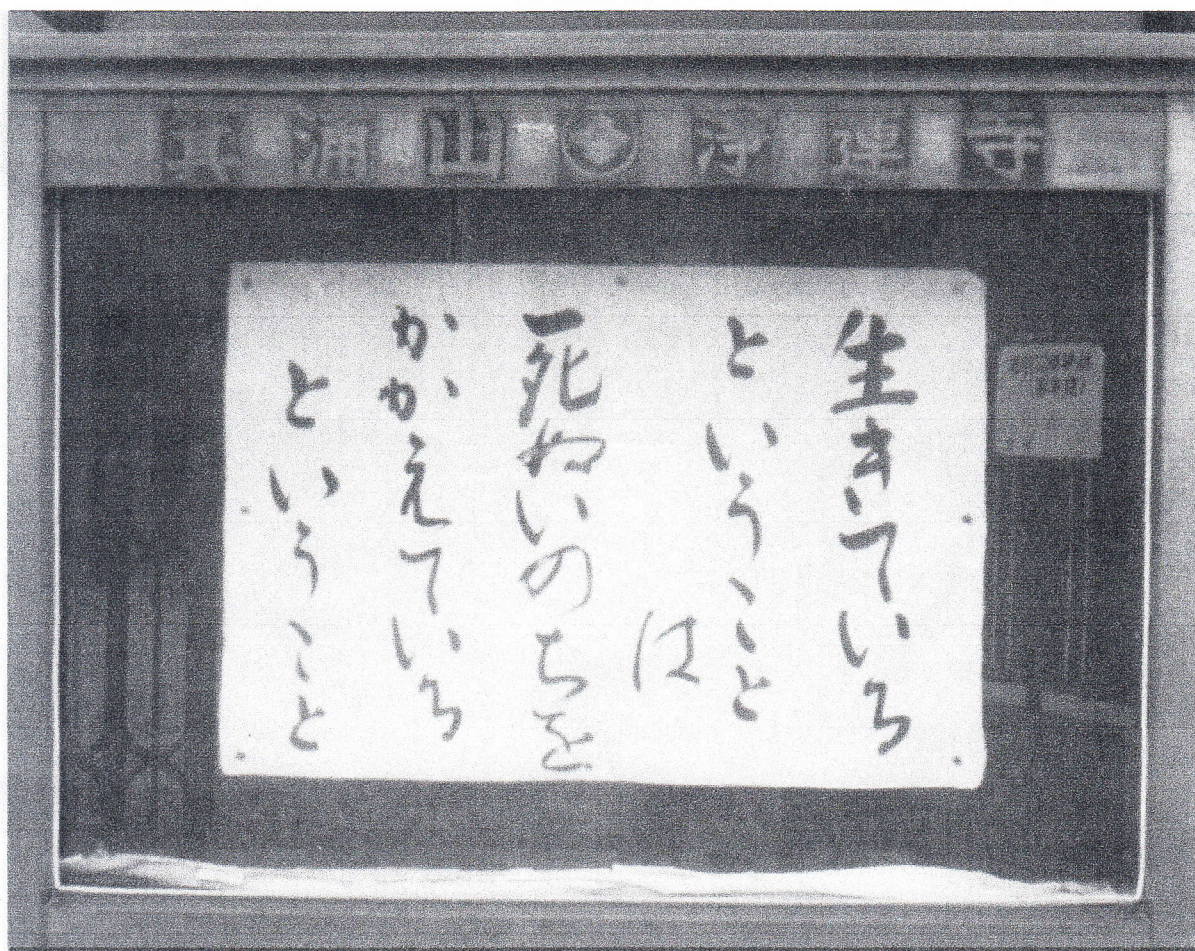 山 浄蓮寺
生きている
ということ
は
死ぬいのちを
かかえている
ということ